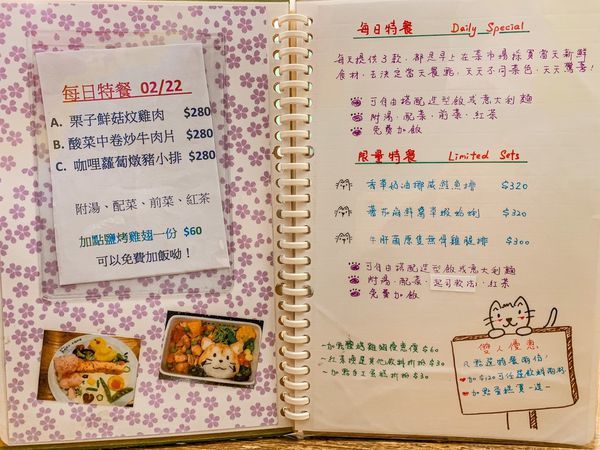 每日特餐 02/22
A. 栗子鮮菇炆雞肉 $280
B. 酸菜中卷炒牛肉片 $280
C. 咖哩蘿蔔燉豬小排 $280
附湯、配菜、前菜、紅茶
加點鹽烤雞翅一份 $60
可以免費加飯呦！
每日特餐 Daily Special
每天提供3款,都是早上在菜市場採買當天新鮮
食材,去決定當天餐點,天天不同菜色,天天驚喜!
可自由搭配造型飯或意大利麵
附湯、配菜、前菜、紅茶
免費加飯
限量特餐 Limited Sets
香草奶油挪威鮭魚排 $320
蕃茄海鮮 $320
牛肝菌原隻無骨雞腿排 $300
可自由搭配造型飯或意大利麵
附湯、配菜、起司軟法、紅茶
免費加飯
~加點鹽烤雞翅優惠價$60
~紅茶換其他飲料折抵$30
~加點手工蛋糕折抵$30
雙人優惠
只點是特餐兩份!
加$120可任選飲料兩杯
加點蛋糕買一送一